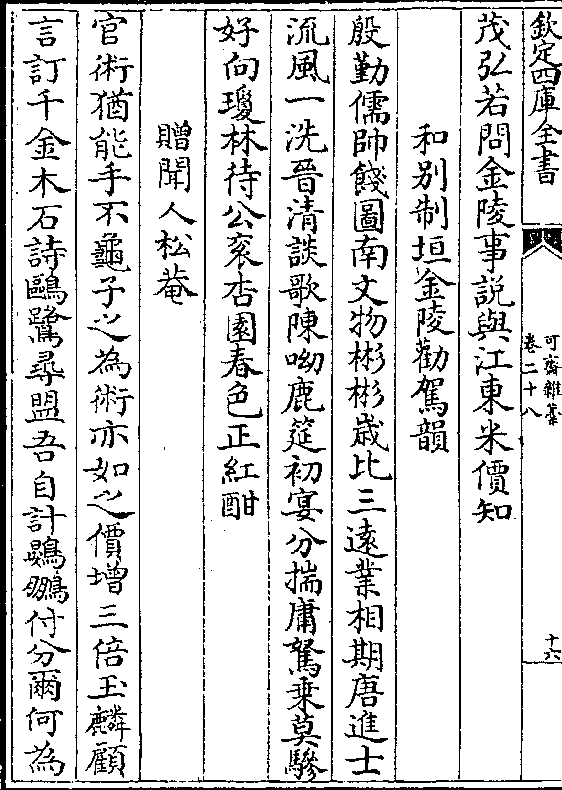 欽定四庫全書
可齋雜藁
卷二十八
十六
茂弘若問金陵事說與江東米價知
和別制垣金陵勸駕韻
殷勤儒帥餞圖南文物彬彬歲比三遠業相期唐進士
流風一洗晉清談歌陳呦鹿筵初宴分揣庸駑乗莫驂
好向瓊林待公衮杏園春色正紅酣
贈聞人松菴
官術猶能手不龜子之為術亦如之價增三倍玉麟顧
言訂千金木石詩鷗鷺尋盟吾自計鷃鵬付分爾何為